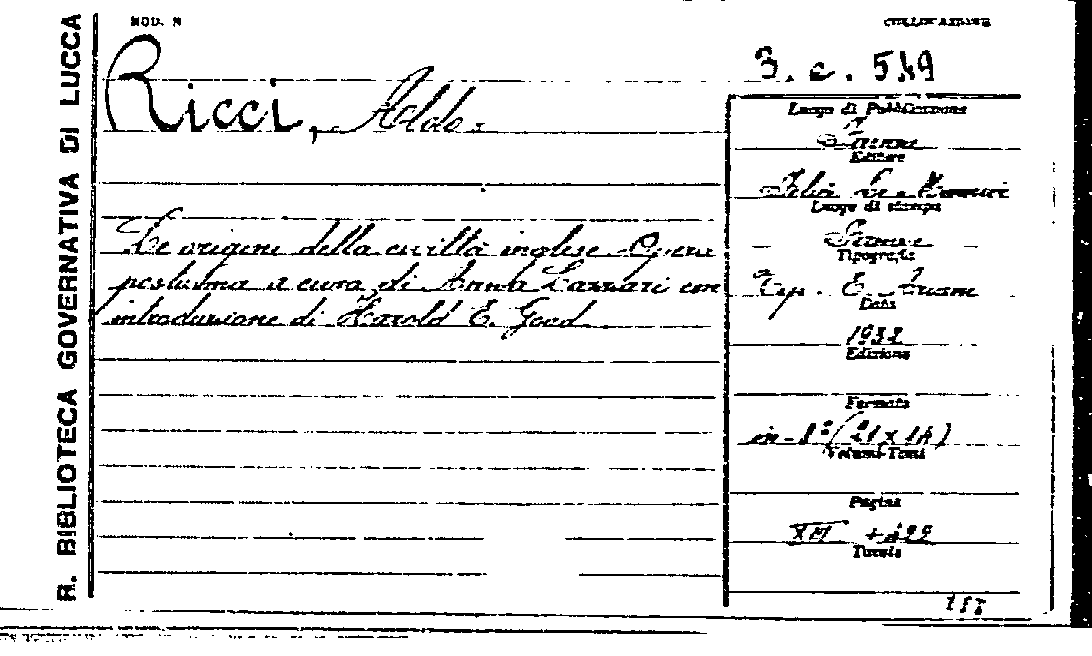 R. BIBLIOTECA GOVERNATIVA DI LUCCA
MOD. N
COLLOCAZIONE
3. c. 549
Ricci, Aldo.
Le origini della civiltà inglese Opera
postuma a cura di Lazzari con
introduzione di Harold E. Goad
Luogo di Pubblicazione
Firenze
Editore
Felice Le Monnier
Luogo di stampa
Firenze
Tipografia
Tip. E. Ariani
Data
1932
Edizione
Formato
in-8° (21 x 14)
Volumi-Tomi
Pagine
Tavole